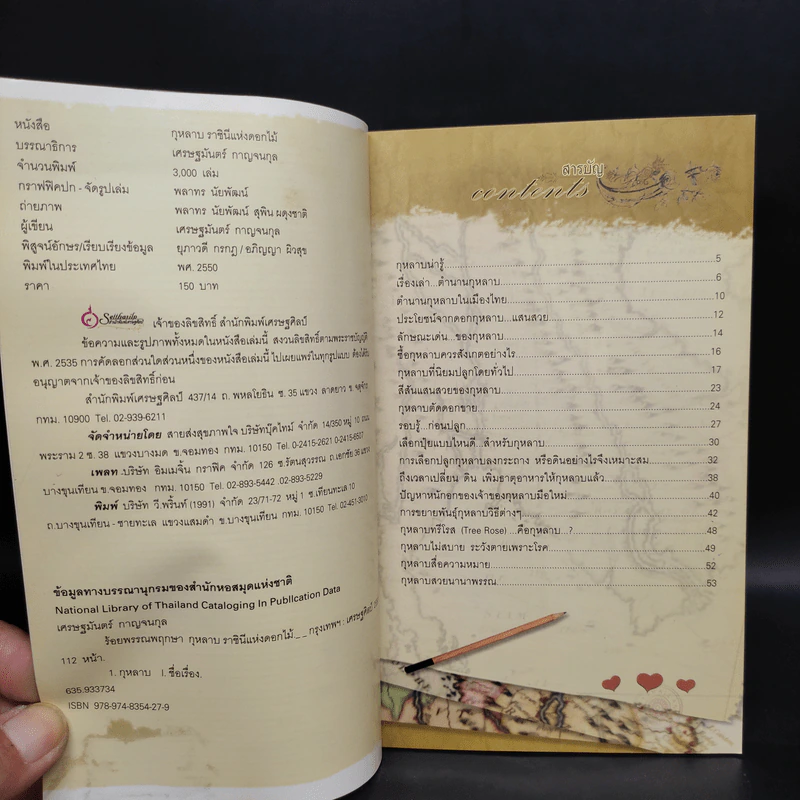 หนังสือ กุหลาบ ราชินีแห่งดอกไม้
บรรณาธิการ เศรษฐมันตร์ กาญจนกุล
จำนวนพิมพ์ 3,000 เล่ม
กราฟฟิคปก - จัดรูปเล่ม พลาทร นัยพัฒน์
ถ่ายภาพ พลาทร นัยพัฒน์ สุพิน ผดุงชาติ
ผู้เขียน เศรษฐมันตร์ กาญจนกุล
พิสูจน์อักษร/เรียบเรียงข้อมูล ยุภาวดี กรกฎ / อภิญญา ผิวสุข
พิมพ์ในประเทศไทย พศ. 2550
ราคา 150 บาท
เจ้าของลิขสิทธิ์ สำนักพิมพ์เศรษฐศิลป์
ข้อความและรูปภาพทั้งหมดในหนังสือเล่มนี้ สงวนลิขสิทธิ์ตามพระราชบัญญัติ
พ.ศ. 2535 การคัดลอกส่วนใดส่วนหนึ่งของหนังสือเล่มนี้ ไปเผยแพร่ในทุกรูปแบบ ต้องได้รับ
อนุญาตจากเจ้าของลิขสิทธิ์ก่อน
สำนักพิมพ์เศรษฐศิลป์ 437/14 ถ. พหลโยธิน ซ. 35 แขวง ลาดยาว ข. จตุจักร
กทม. 10900 Tel. 02-939-6211
จัดจำหน่ายโดย สายส่งสุขภาพใจ บริษัทบุ๊คไทม์ จำกัด 14/350 หมู่ 10 ถนน
พระราม 2 ซ. 38 แขวงบางมด ข.จอมทอง กทม. 10150 Tel. 0-2415-2621 0-2415-6507
เพลท .บริษัท อิมเมจิ้น กราฟิค จำกัด 126 ซ.รัตนสุวรรณ ถ.เอกชัย 36 แขวง
บางขุนเทียน ข.จอมทอง กทม. 10150 Tel. 02-893-5442 .02-893-5229
พิมพ์ บริษัท วี.พริ้นท์ (1991) จำกัด 23/71-72 หมู่ 1 ซ.เทียนทะเล 10
ถ.บางขุนเทียน - ชายทะเล แขวงแสมดำ ข.บางขุนเทียน กทม. 10150 Tel. 02-451-3010
ข้อมูลทางบรรณานุกรมของสำนักหอสมุดแห่งชาติ
National Library of Thailand Cataloging In Publlcation Data
เศรษฐมันตร์ กาญจนกุล
ร้อยพรรณพฤกษา กุหลาบ ราชินีแห่งดอกไม้._ _ กรุงเทพฯ : เศรษฐศิลป์
112 หน้า.
1. กุหลาบ I. ชื่อเรื่อง.
635.933734
ISBN 978-974-8354-27-9
สารบัญ
contents
กุหลาบน่ารู้...5
เรื่องเล่า...ตำนานกุหลาบ...6
ตำนานกุหลาบในเมืองไทย...10
ประโยชน์จากดอกกุหลาบ...แสนสวย...12
ลักษณะเด่น...ของกุหลาบ...14
ซื้อกุหลาบควรสังเกตอย่างไร...16
กุหลาบที่นิยมปลูกโดยทั่วไป...17
สีสันแสนสวยของกุหลาบ...23
กุหลาบตัดดอกขาย...24
รอบรู้...ก่อนปลูก...27
เลือกปุ๋ยแบบไหนดี...สำหรับกุหลาบ...30
การเลือกปลูกกุหลาบลงกระถาง หรือดินอย่างไรจึงเหมาะสม...32
ถึงเวลาเปลี่ยน ดิน เพิ่มธาตุอาหารให้กุหลาบแล้ว...38
ปัญหาหนักอกของเจ้าของกุหลาบมือใหม่...40
การขยายพันธุ์กุหลาบวิธีต่างๆ...42
กุหลาบทรีโรส (Tree Rose) ...คือกุหลาบ...?...48
กุหลาบไม่สบาย ระวังตายเพราะโรค...49
กุหลาบสื่อความหมาย...52
กุหลาบสวยนานาพรรณ...53